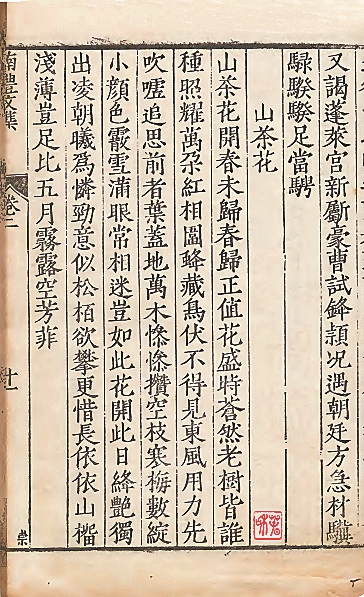 又謁蓬萊宮新劚豪曹試鋒頴况遇朝廷方急材驥
騄騤騤足當騁
山茶花
山茶花開春未歸春歸正值花盛時蒼然老樹皆誰
種照耀萬朶紅相圍蜂藏鳥伏不得見東風用力先
吹噓追思前者葉蓋地萬木慘慘攢空枝寒梅數綻
小顏色霰雪滿眼常相迷豈如此花開此日絳艷獨
出凌朝曦爲憐勁意似松栢欲攀更惜長依依山榴
淺薄豈足比五月霧露空芳菲
卷二
十一
崇